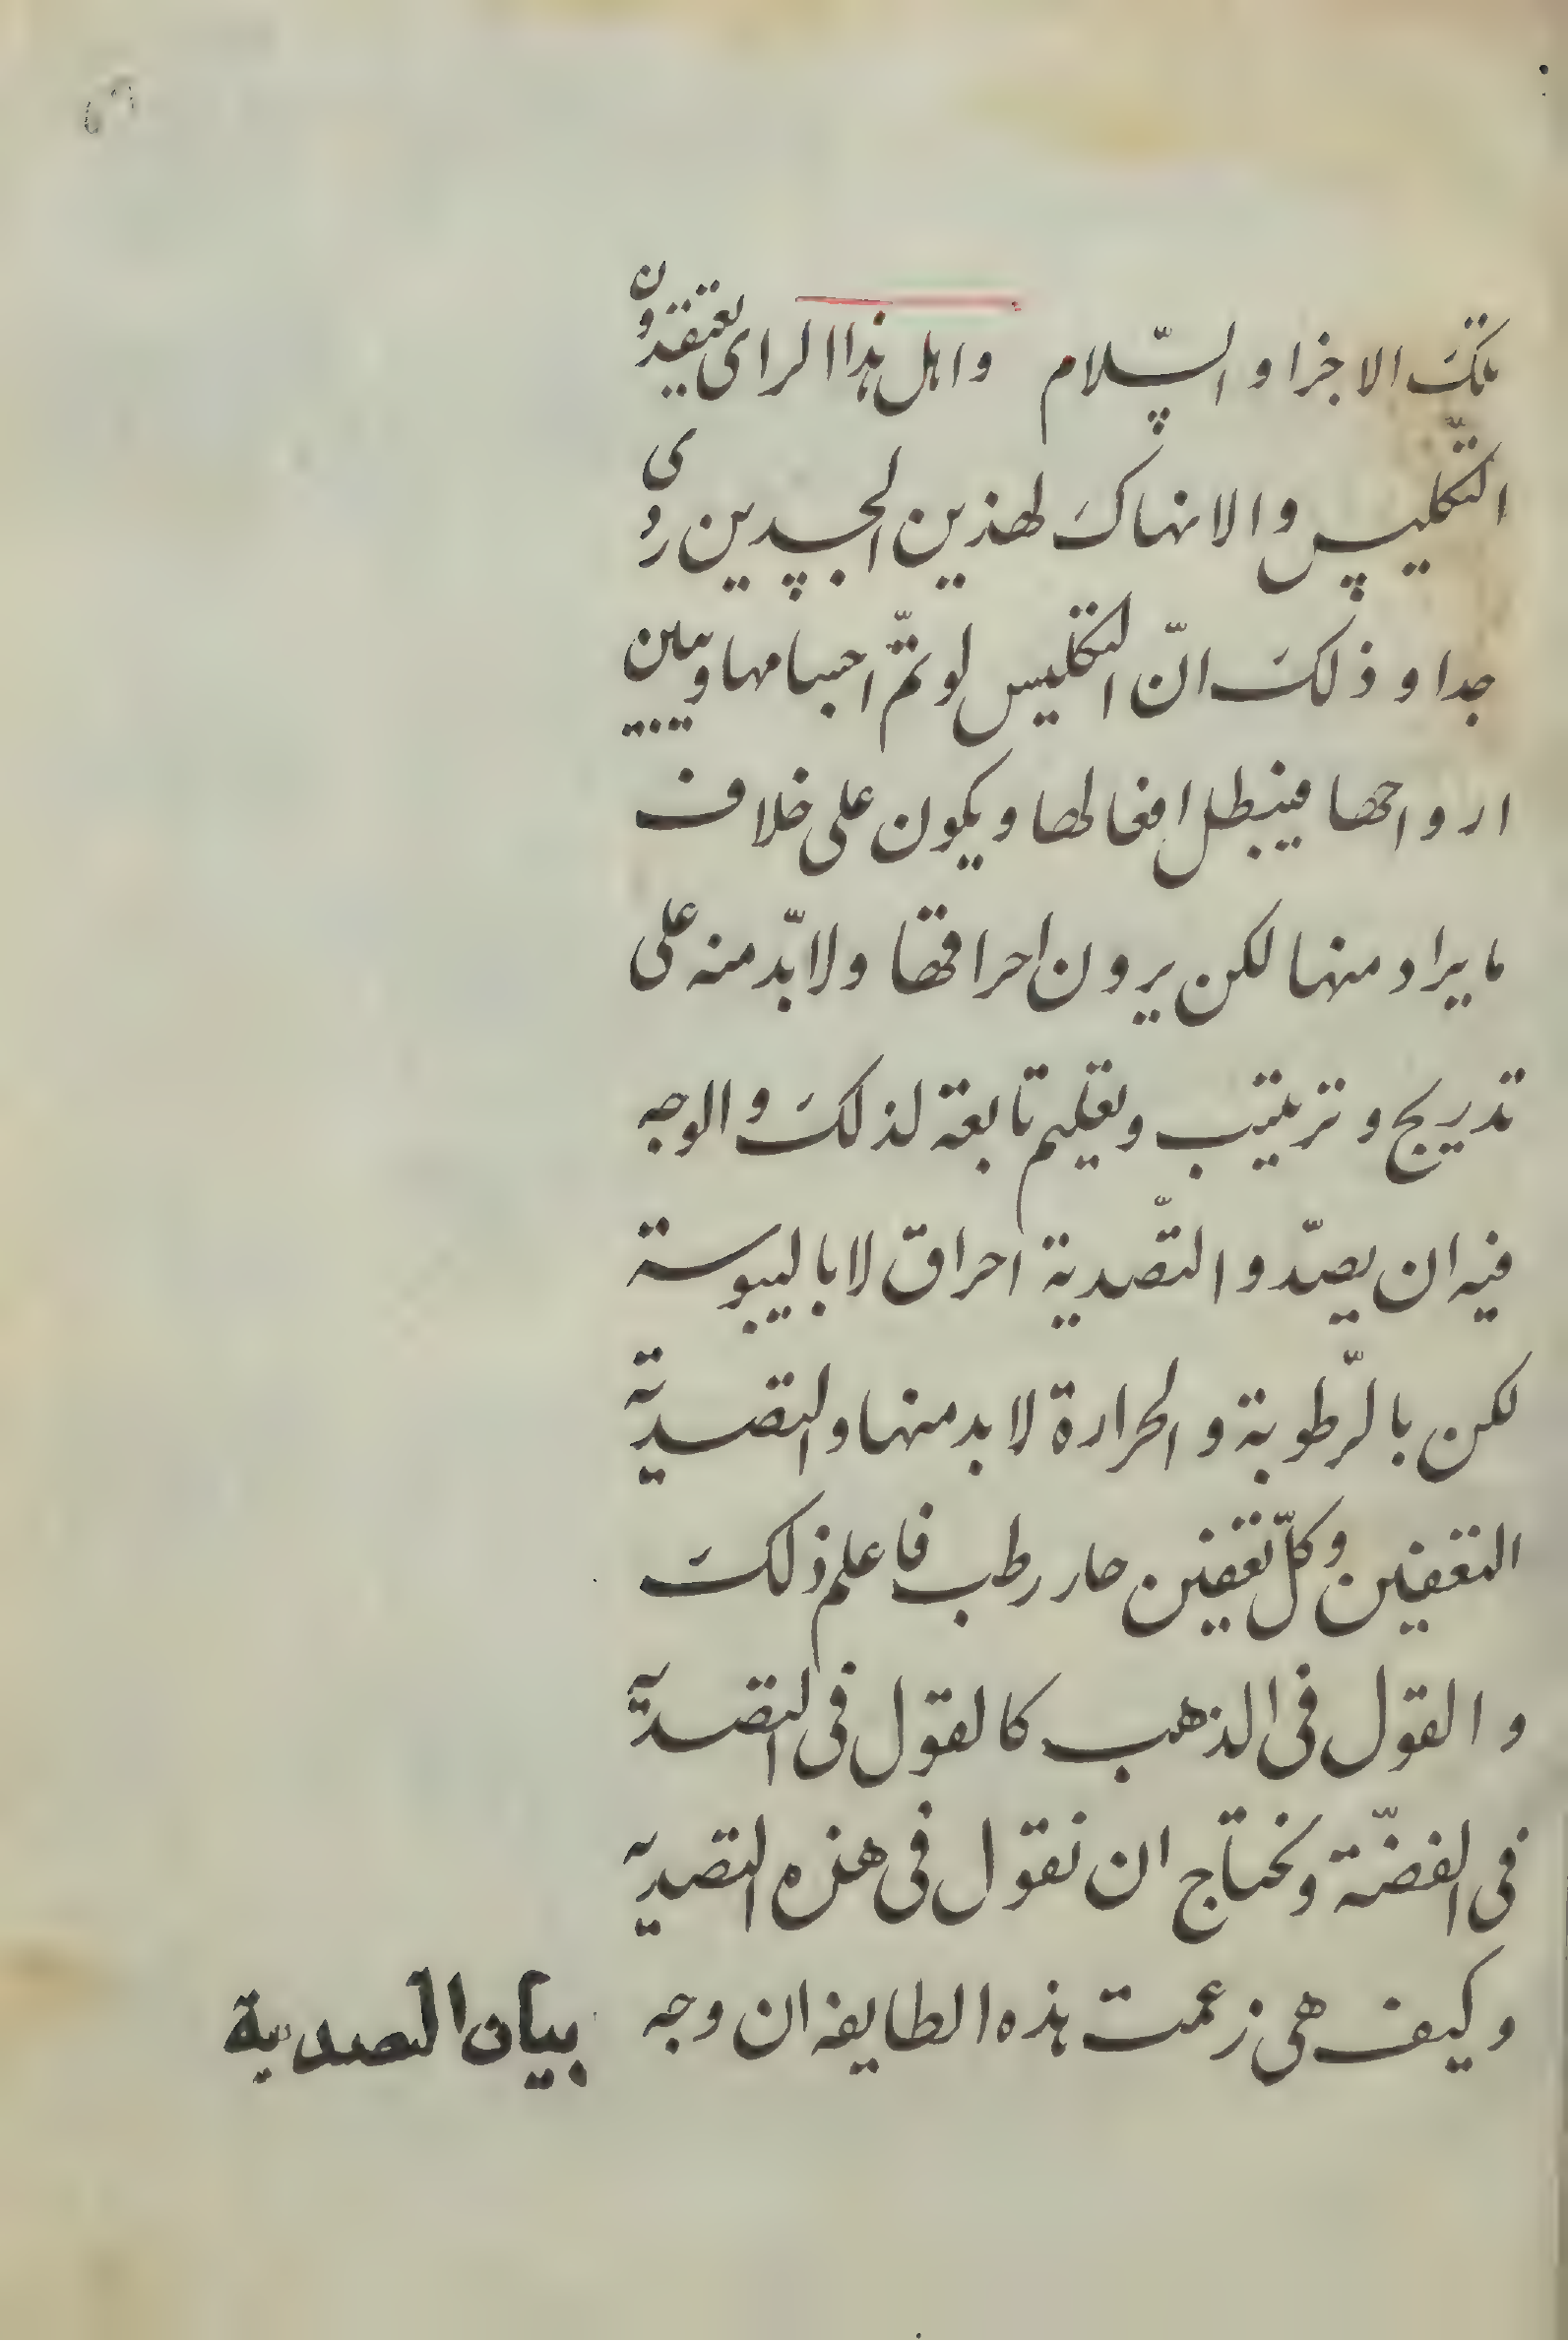 تلك الاجزا والسّلام واهل هذا الراى يعتقدون
التّكليس والانهاك لهذين الجسدين روى
جدا وذلك انّ التكليس لو تمّ اجسامها ويبين
ارواحها فيبطل افعالها ويكون على خلاف
ما يراد منها لكن يرون احراقها ولا بدّ منه على
تدريج وترتيب وتعليم تابعة لذلك والوجه
فيه ان يصدّ والتّصدية احراق لا باليبوسة
لكن بالرّطوبة والحرارة لا بد منها والتصدية
التعفين وكلّ تعفين حار رطب فاعلم ذلك
والقول فى الذهب كالقول فى التصديه
فى الفضّة ونحتاج ان نقول فى هذه التصديه
وكيف هى زعمت هذه الطايفه ان وجه
بيان التصدية